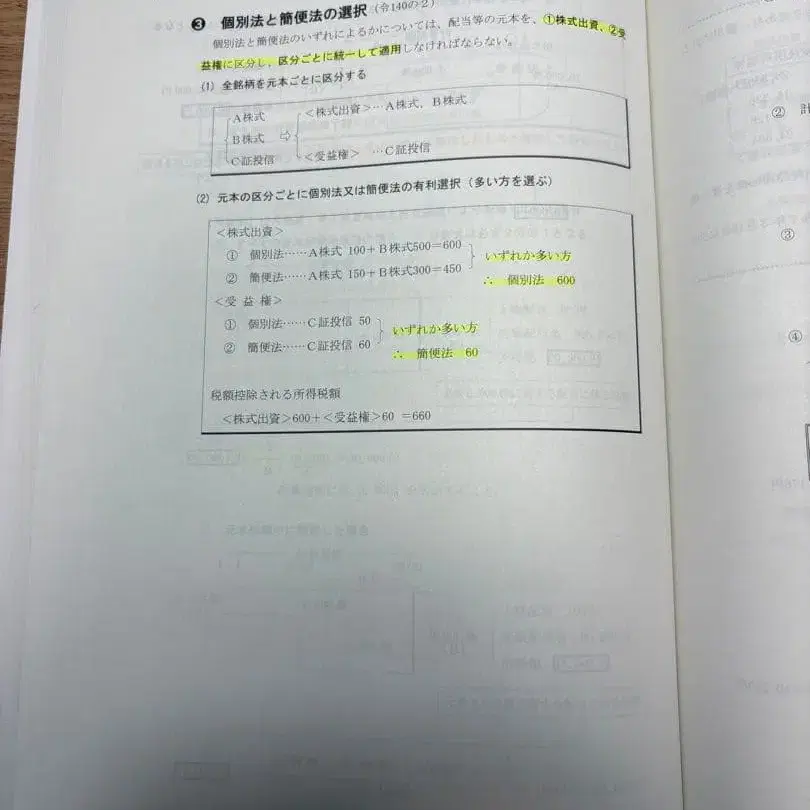 ❸ 個別法と簡便法の選択(令140の2)
個別法と簡便法のいずれによるかについては、配当等の元本を、①株式出資、②受
益権に区分し、区分ごとに統一して適用しなければならない。
(1) 全銘柄を元本ごとに区分する
A株式 <株式出資>…A株式，B株式
B株式 ⇨
C証投信 <受益権> …C証投信
(2) 元本の区分ごとに個別法又は簡便法の有利選択（多い方を選ぶ）
<株式出資>
① 個別法……A株式 100＋B株式500＝600
いずれか多い方
② 簡便法……A株式 150＋B株式300＝450
∴ 個別法 600
<受 益 権>
① 個別法……C証投信 50
いずれか多い方
② 簡便法……C証投信 60
∴ 簡便法 60
税額控除される所得税額
<株式出資>600＋<受益権>60 ＝660
② 計
③
④